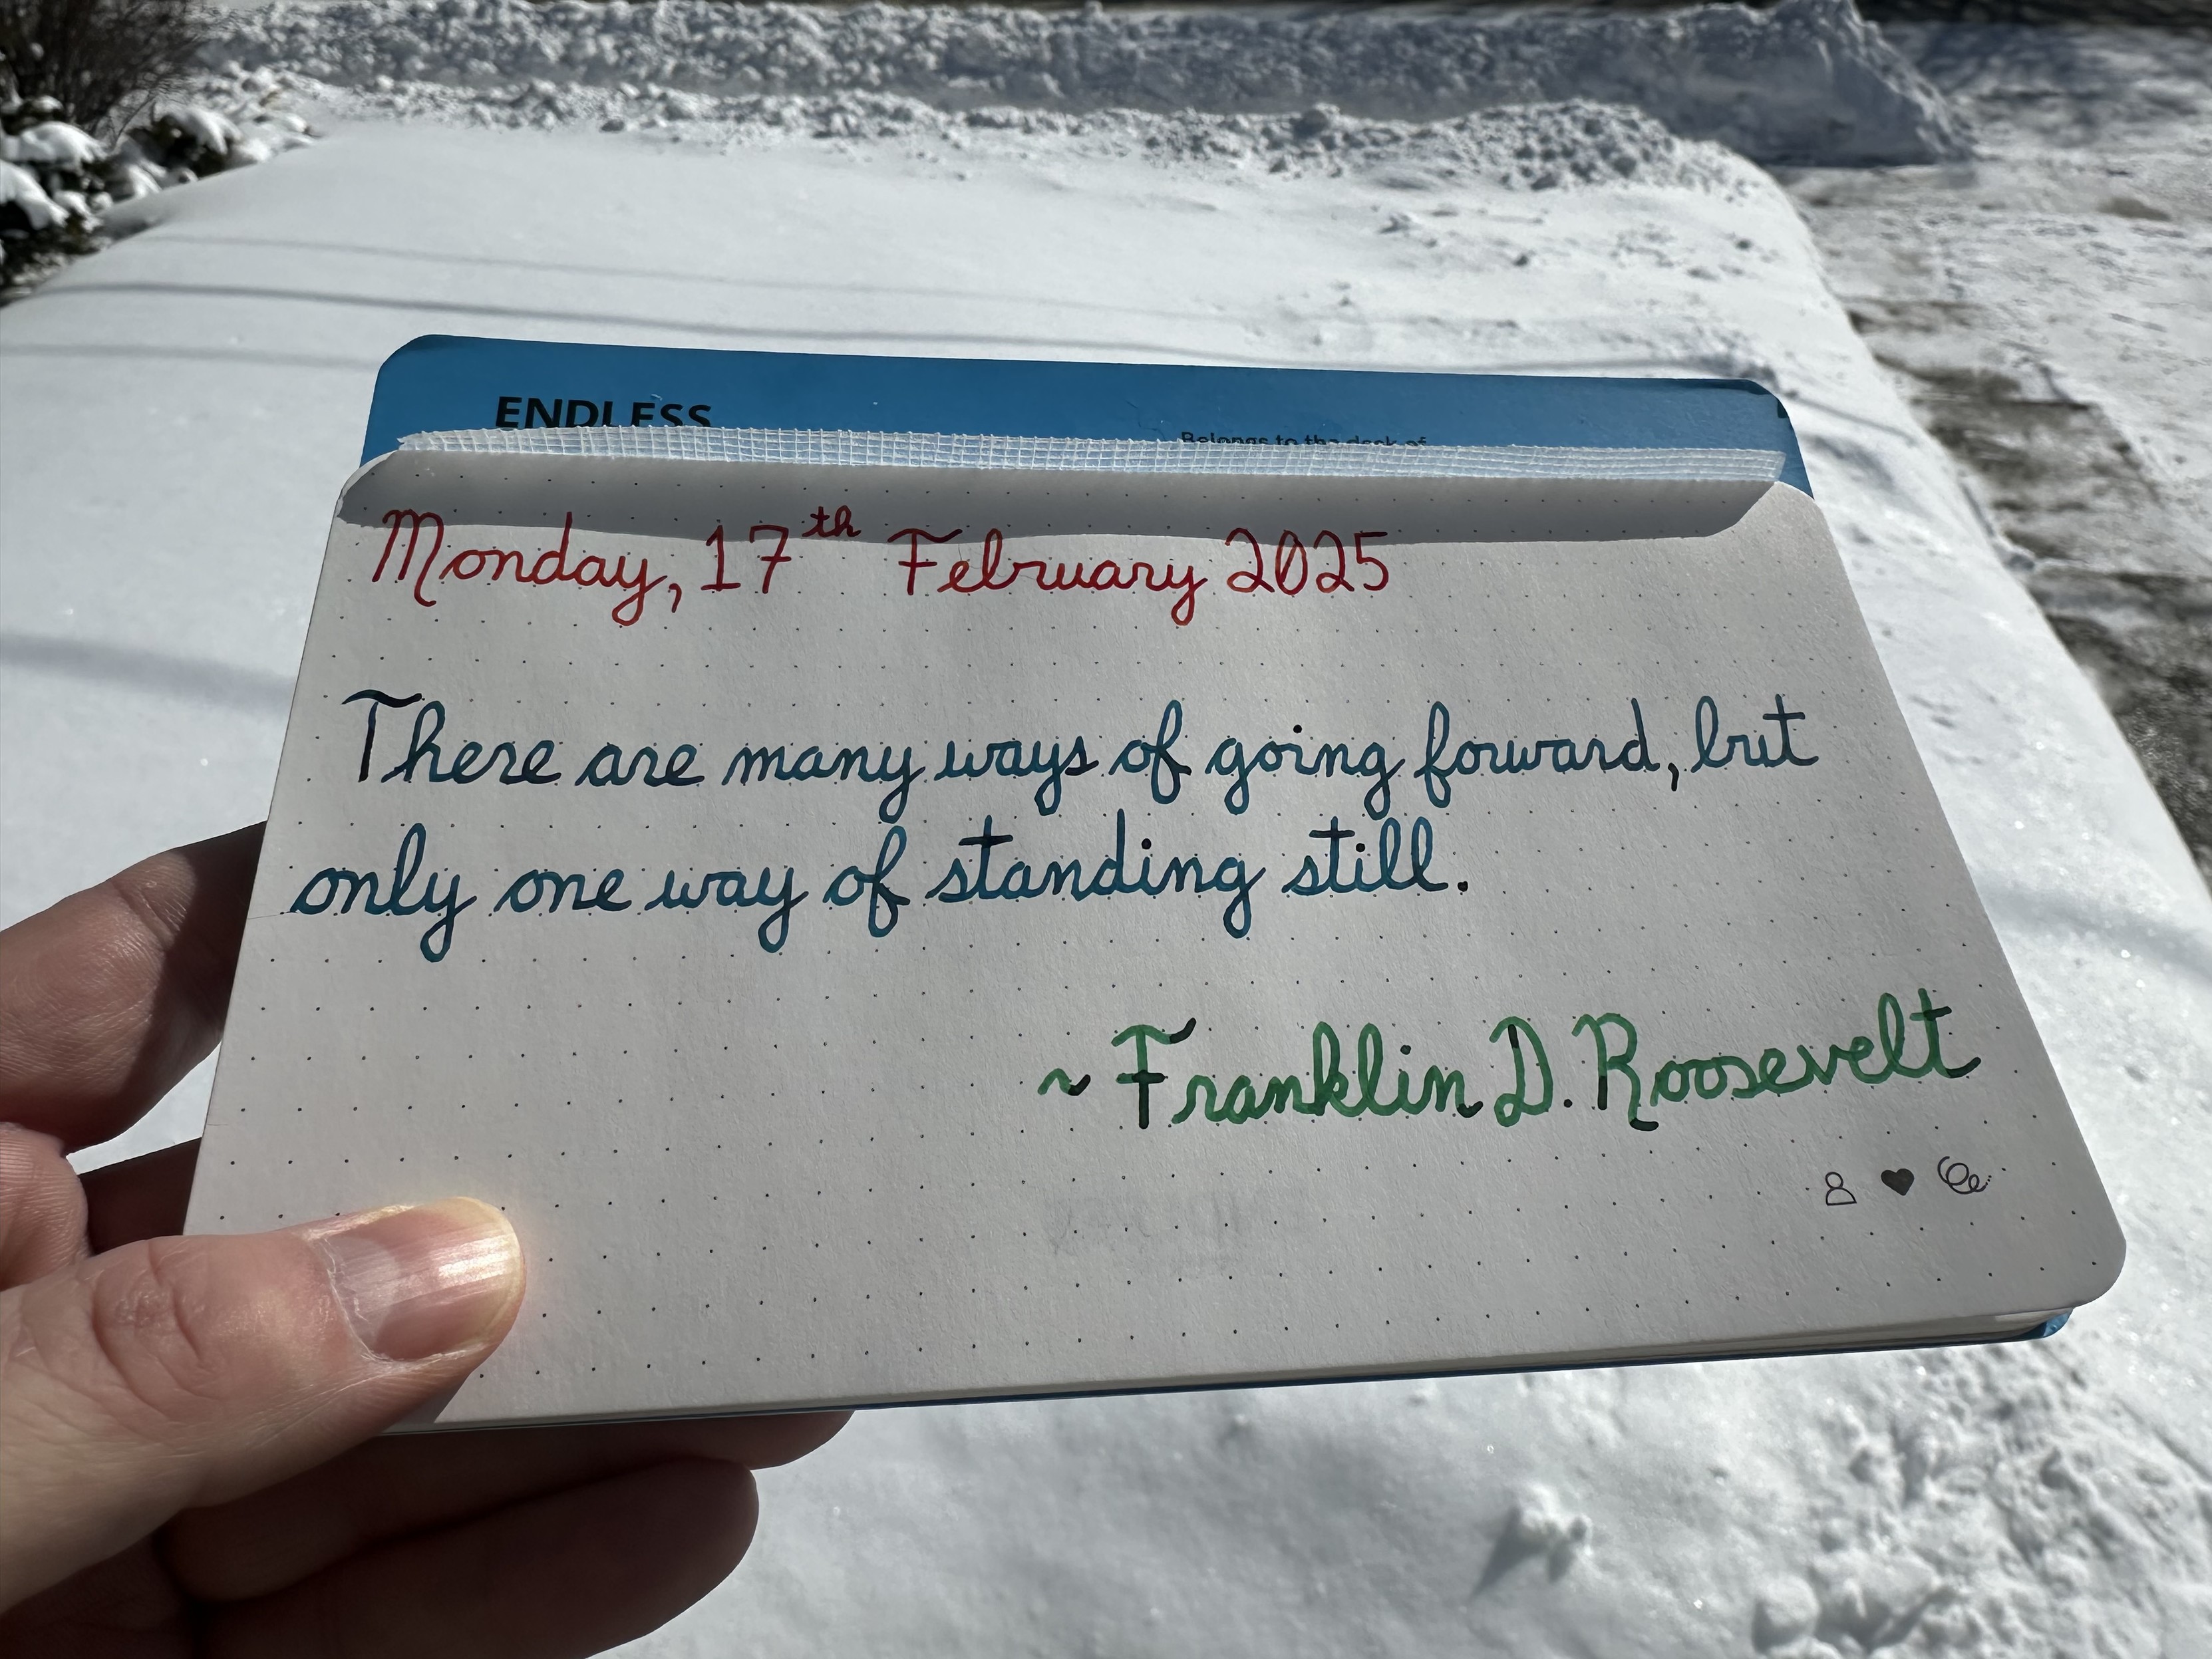 ENDLESS
Belongs to the desk of
Monday, 17th February 2025
There are many ways of going forward, but
only one way of standing still.
~ Franklin D. Roosevelt